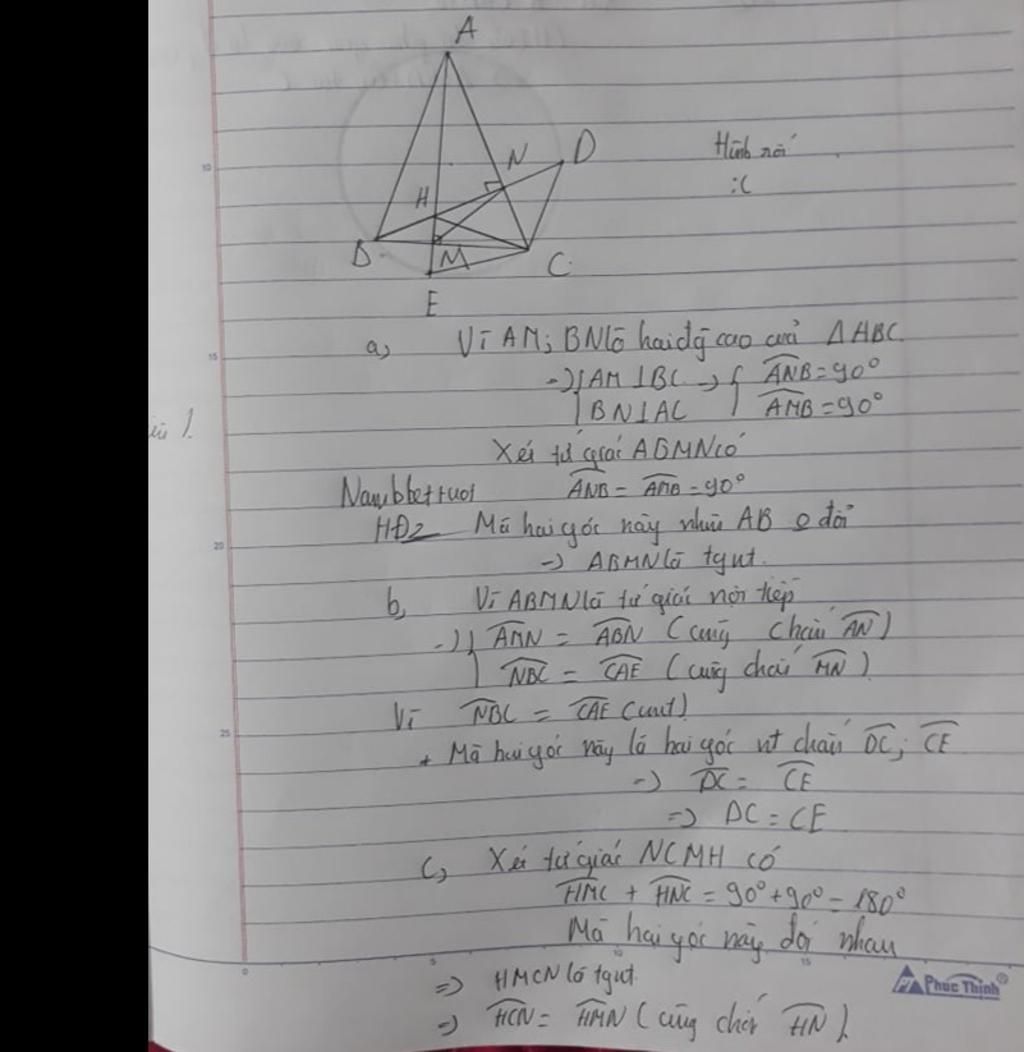 A
N D
Hình xấu
:(
H
B M C
E
a, Vì AM; BN là hai đg cao của ΔABC
-> { AM ⊥ BC -> { ANB = 90°
BN ⊥ AC AMB = 90°
Xét tứ giác ABMN có
Nambbettuot ANB = AMB = 90°
HĐ2 Mà hai góc này nhìn AB
-> ABMN là tgnt.
b, Vì ABMN là tứ giác nội tiếp
-> { AMN = ABN (cùng chắn AN)
NBC = CAE (cùng chắn MN)
Vì NBC = CAE (cmt)
+ Mà hai góc này là hai góc nt chắn DC; CE
-> DC = CE
=> DC = CE
c, Xét tứ giác NCMH có
HMC + HNC = 90° + 90° = 180°
Mà hai góc này đối nhau
=> HMCN là tgnt
=> HCN = HMN (cùng chắn HN).
Phúc Thịnh
10
15
20
25
0
5
10
15